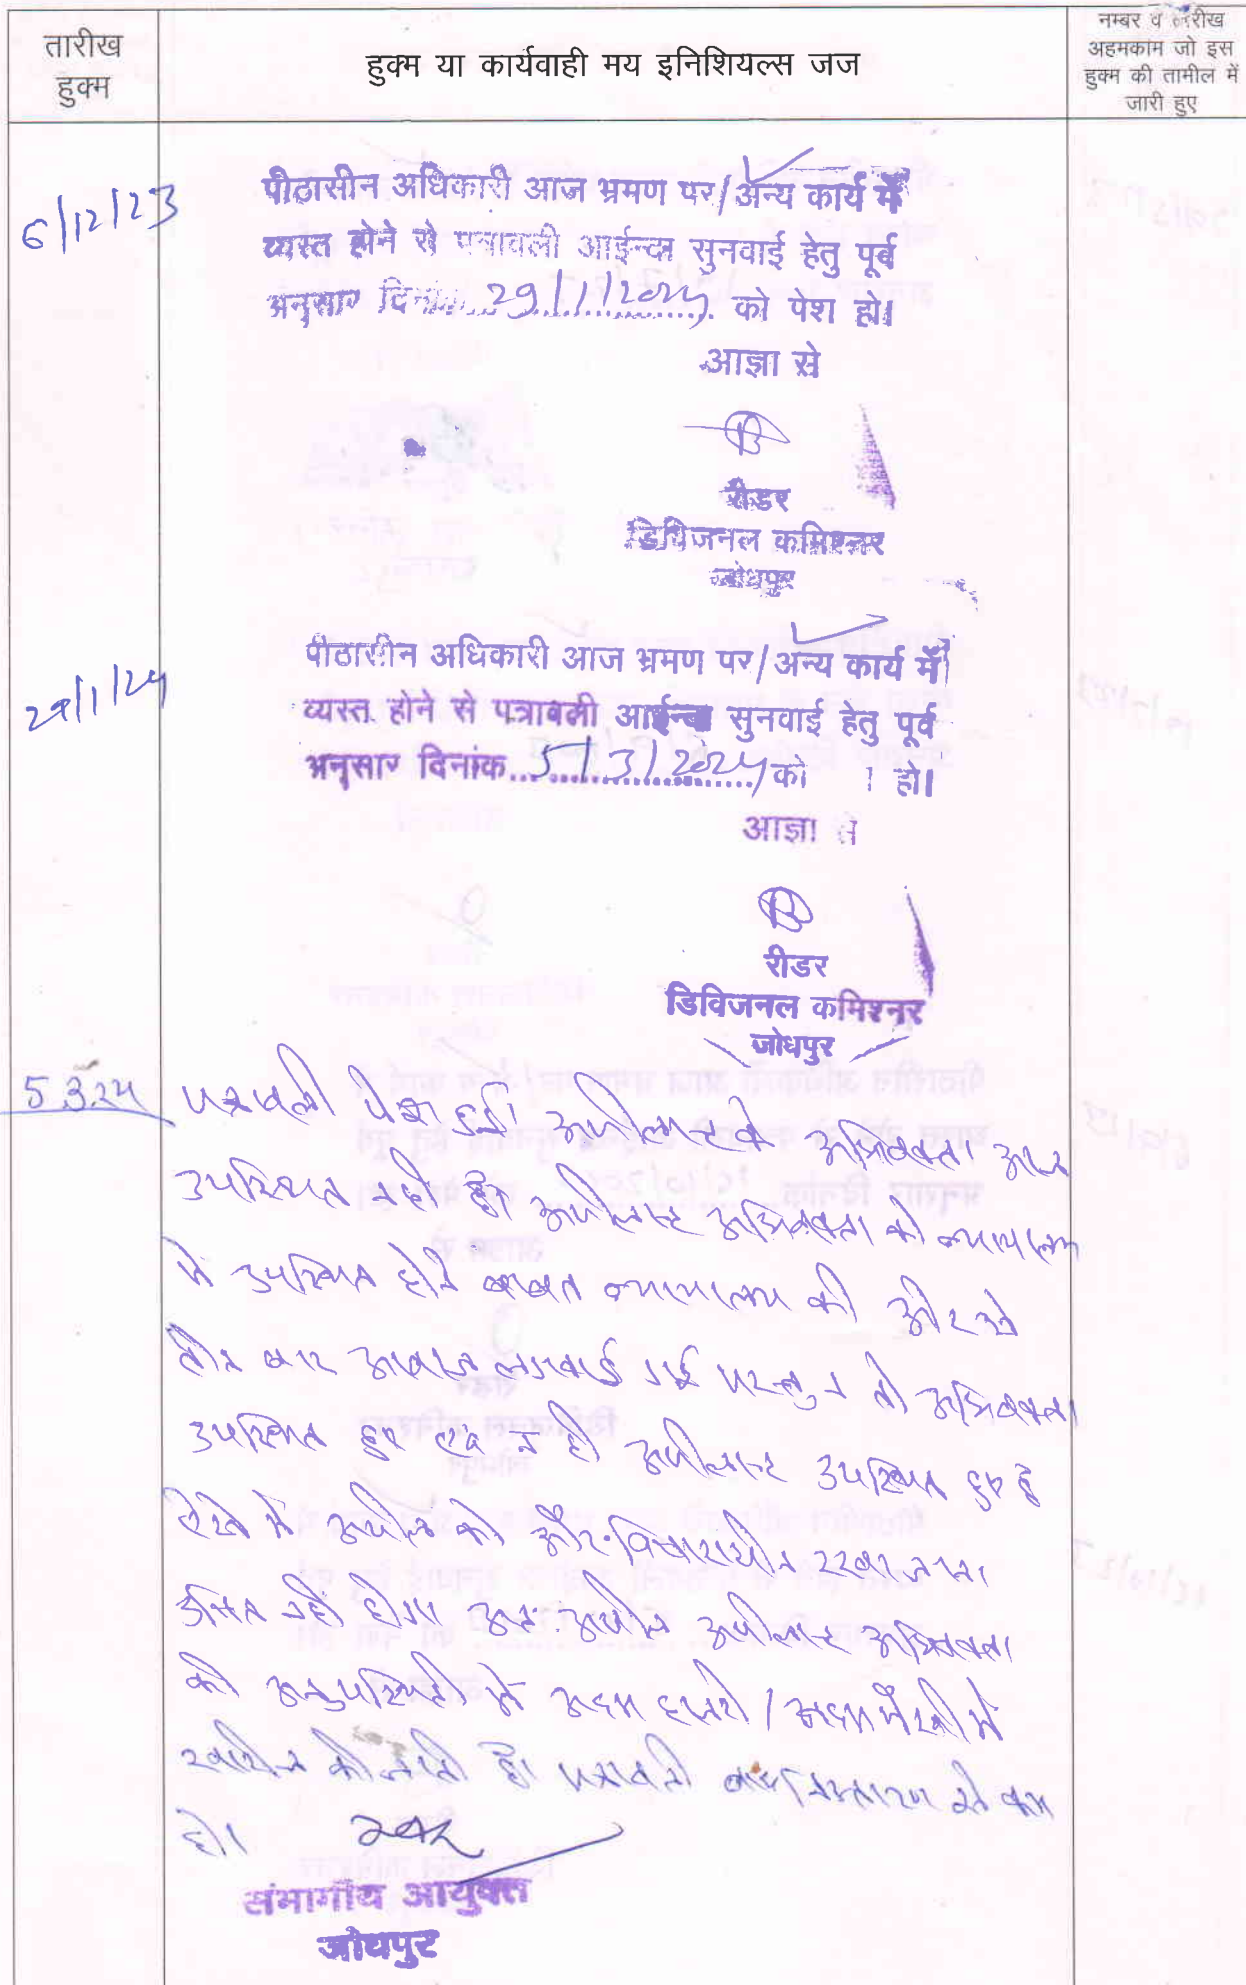 तारीख
हुक्म
हुक्म या कार्यवाही मय इनिशियल्स जज
नम्बर व तारीख
अहमकाम जो इस
हुक्म की तामील में
जारी हुए
6/12/23
पीठासीन अधिकारी आज भ्रमण पर/अन्य कार्य में
व्यस्त होने से पत्रावली आईन्दा सुनवाई हेतु पूर्व
अनुसार दिनांक 29/1/2024 को पेश हो।
आज्ञा से
रीडर
डिविजनल कमिश्नर
जोधपुर
29/1/24
पीठासीन अधिकारी आज भ्रमण पर/अन्य कार्य में
व्यस्त होने से पत्रावली आईन्दा सुनवाई हेतु पूर्व
अनुसार दिनांक...5/3/2024 को हो।
आज्ञा से
रीडर
डिविजनल कमिश्नर
जोधपुर
5.3.24
पत्रावली पेश हुई। अपीलान्ट के अभिवक्ता आज
उपस्थित नही है। अपीलान्ट अभिवक्ता को न्यायालय
मे उपस्थित होने बाबत न्यायालय की ओर से
तीन बार आवाज लगवाई गई परन्तु न तो अभिवक्ता
उपस्थित हुए एवं न ही अपीलान्ट उपस्थित हुए है
ऐसे मे अपील को और विचाराधीन रखा जाना
उचित नही होगा अतः अपील अपीलान्ट अभिवक्ता
की अनुपस्थिती मे अदम हाजरी / अदम पैरवी मे
खारीज की जाती है। पत्रावली बाद निस्तारण से कम
हो।
संभागीय आयुक्त
जोधपुर